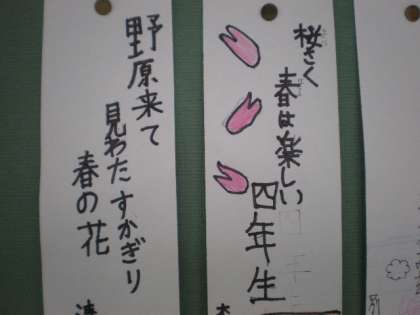 桜さく
春は楽しい
四年生
野原来て
見わたすかぎり
春の花